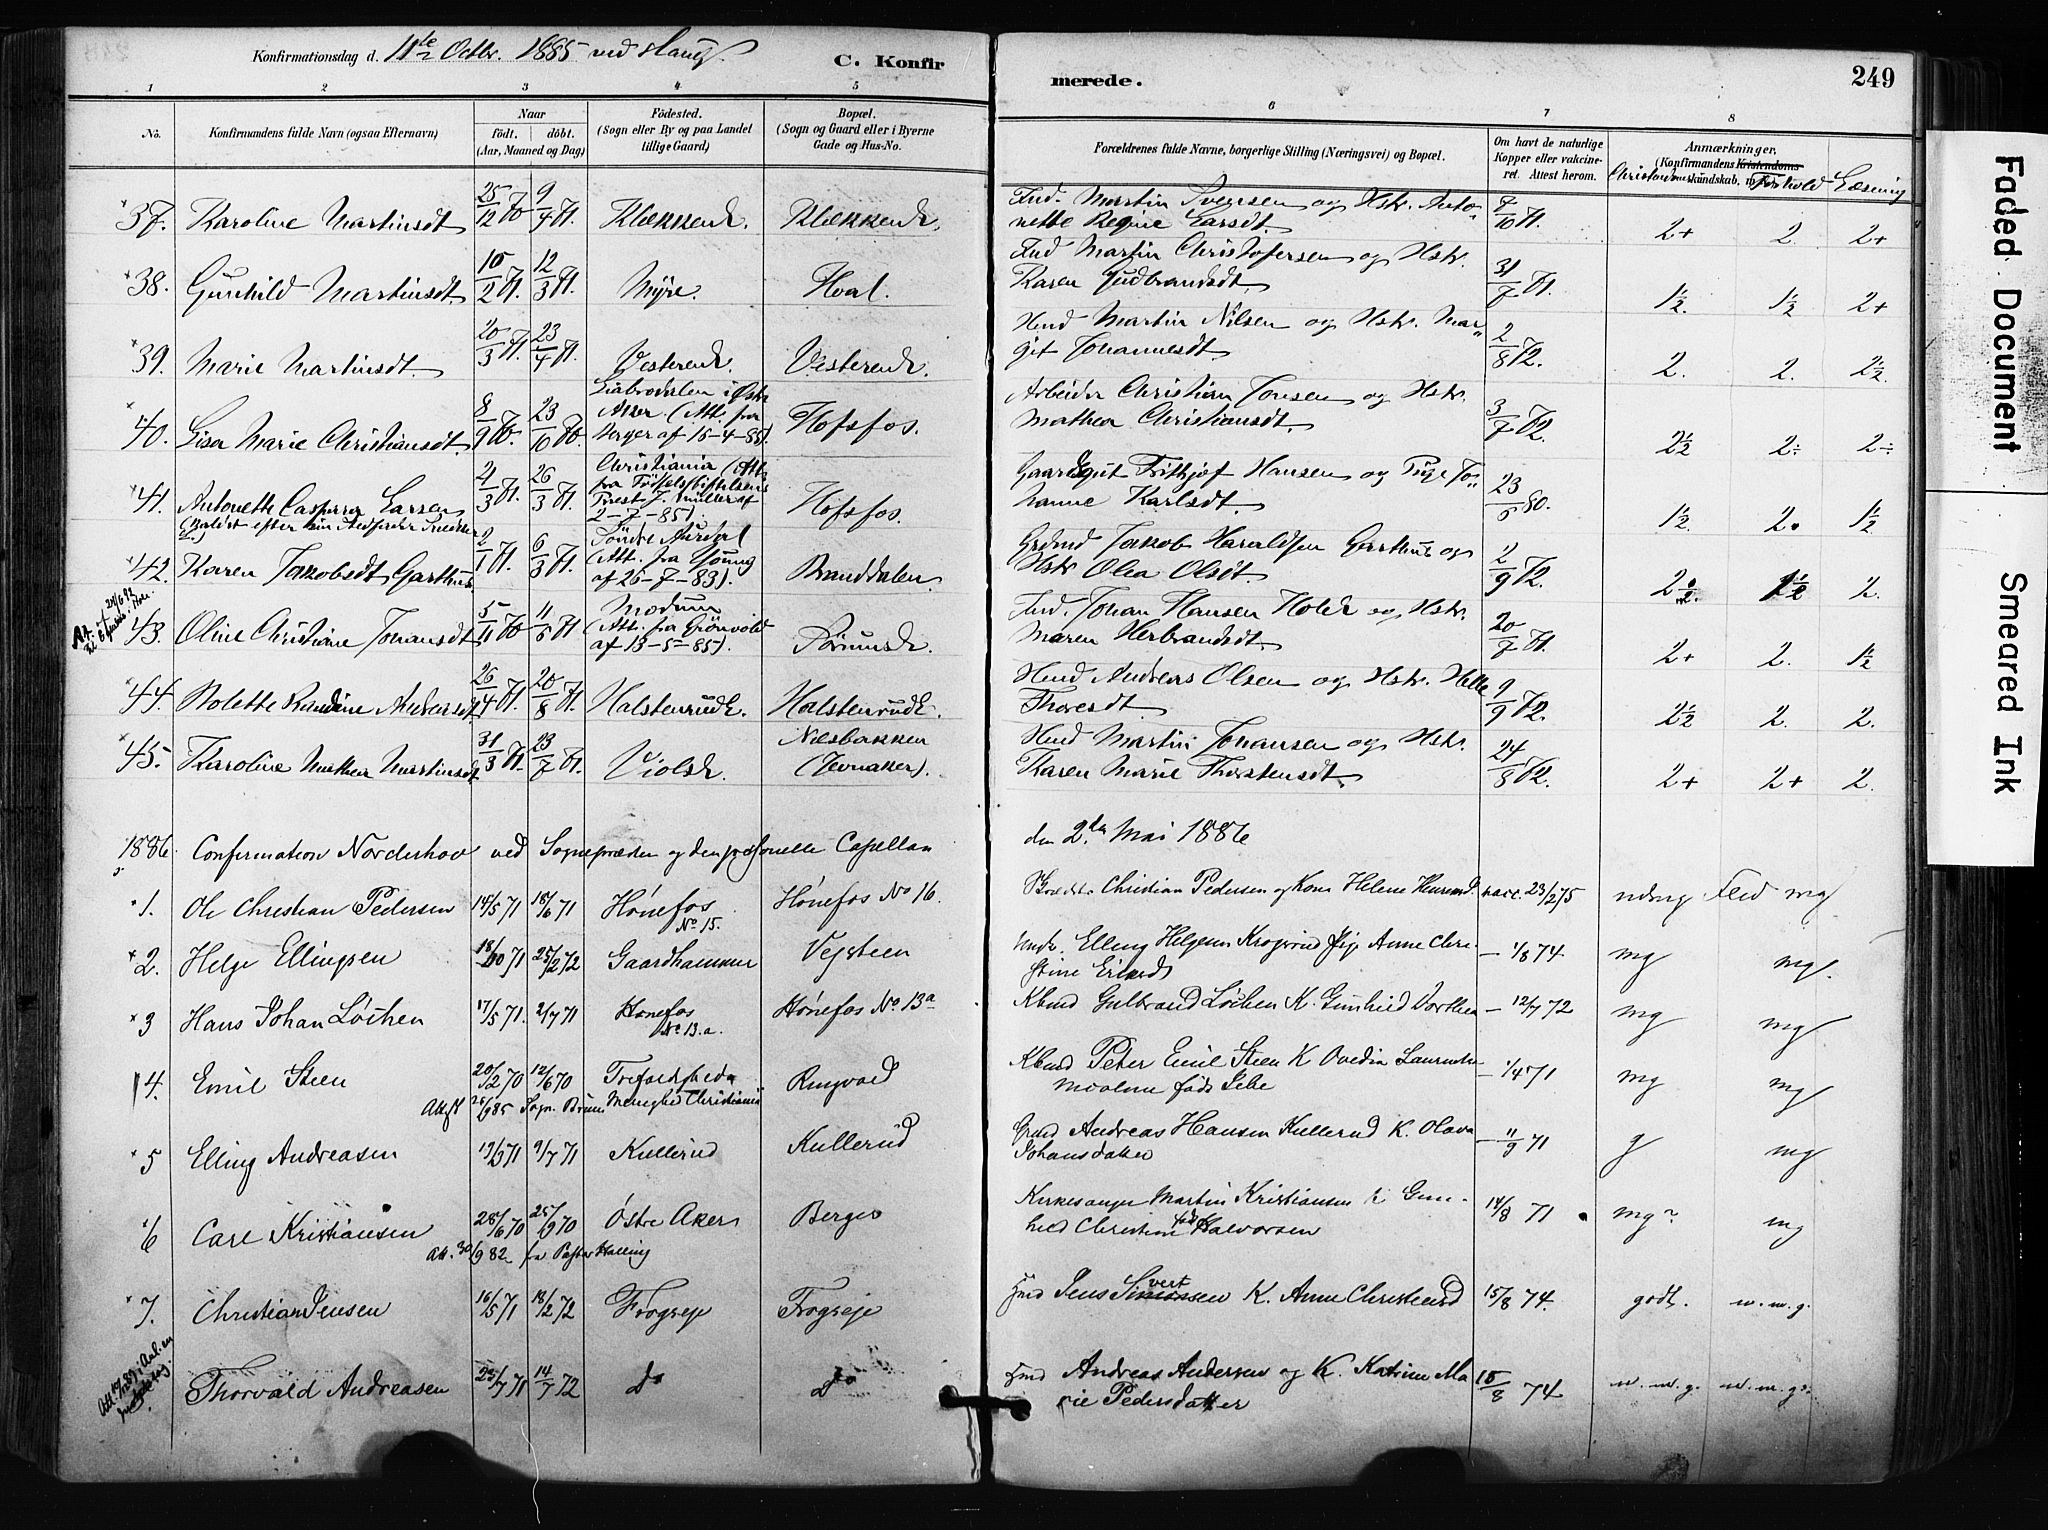 Konfirmationsdag d. 11te Octbr. 1885 ved Haug.
C. Konfirmerede.
249
1 2 3 4 5 6 7 8
No.
Konfirmandens fulde Navn (ogsaa Efternavn)
Naar
födt. döbt.
(Aar, Maaned og Dag)
Födested.
(Sogn eller By og paa Landet
tillige Gaard)
Bopæl.
(Sogn og Gaard eller i Byerne
Gade og Hus-No.
Forældrenes fulde Navne, borgerlige Stilling (Næringsvei) og Bopæl.
Om havt de naturlige
Kopper eller vakcine-
ret. Attest herom.
Anmærkninger.
(Konfirmandens Kristendoms-
kundskab. m. m.)
Forhold Læsning
37. Karoline Martinsdt 25/12 70 9/4 71. Klækkenk. Klækkenk.
Ind. Martin Svensen og Hstr. Anto-
nette Regine Larsdt. 7/10 71. 2+ 2. 2+
38. Gunhild Martinsdt. 10/2 71. 12/3 71. Myre. Hval.
Ind Martin Christofersen og Hstr.
Karen Gudbrandsdt. 31/7 71. 1½. 1½ 2+
39. Marie Martinsdt. 20/3 71. 23/4 71. Vesterenk. Vesterenk.
Hmd Martin Nilsen og Hstr. Mar-
git Johannesdt. 2/8 72. 2. 2. 2½.
40. Lisa Marie Christiansdt. 8/9 70. 23/10 70. Liabrodalen i Østre
Aker. (Att. fra
Berger af 15-4-85). Hofsfos.
Arbeider Christian Jonsen og Hstr.
Mathea Christiansdt. 3/7 72. 2½ 2÷ 2÷
41. Antonette Caspara Larsen 4/3 71. 26/3 71. Christiania (Att.
fra Födselsstiftelsens
Prest J. Müller af
2-7-85). Hofsfos.
Hansen og Pige Jo-
hanne Karlsdt. 23/6 80. 1½. 2. 1½
42. Karen Jakobsdt Garthus 2/1 71. 6/3 71. Söndre Aurdal
(Att. fra Young
af 26-7-83). Branddalen
Grdmd Jakob Haraldsen Garthus og
Hstr Olea Olsdt 2/9 72. 2.
43. Oline Christiane Johansdt 5/11 70 11/6 71 Modum
(Att. fra Grönvold
af 13-5-85). Sörumsk.
Ind. Johan Hansen Holek og Hstr.
Maren Herbrandsdt. 20/7 71. 2+ 2. 1½
44. Nolette Randine Andersdt 26/4 71. 20/8 71. Halstenrudk. Halstenrudk.
Hmd Andreas Olsen og Hstr. Helle
Thoresdt. 9/9 72. 2½ 2. 2.
45. Karoline Mathea Martinsdt 31/3 71. 23/7 71. Violsk. Næsbakken
(Jevnaker).
Hmd Martin Johansen og Hstr.
Karen Marie Thorstensdt. 24/8 72. 2+ 2+ 2.
1886. Confirmation Norderhov ved Sognepræsten og den personelle Capellan
den 2den Mai 1886
1. Ole Christian Pedersen 14/5 71 18/6 71 Hónefos
No 15. Hónefos No 16.
Christian Pedersen og Kone Helene vacc. 23/2 75 mg
2. Helge Ellingsen 18/10 71 25/2 72 Gaardhammer Vejsteen
Elling Helgesen Pige Anne Chri-
stine — 1/8 74 mg mg.
3 Hans Johan Lóchen 17/5 71. 2/7 71 Hónefos
No 13.a. Hónefos No. 13a
Kbmd Gulbrand Lóchen K. Gunhild Dorthea — 12/7 72 mg mg
4. Emil Steen 20/2 70 12/6 70 Trefoldigheds
Menighed Christiania Ringvold
Kbmd Peter Emil Steen K Ovedia
— 1/4 71 mg mg
5 Elling Andreasen 19/3 71 9/7 71 Kullerud Kullerud
Grmd Andreas Hansen Kullerud K. Olava
Johansdatter — 11/9 71 g mg
6 Carl Kristiansen 28/6 70 25/9 70 Østre Aker Berger
Att. 30/9 82 fra Pastor Halling
Kirkesanger Martin Kristiansen K Gun-
hild Christine född Halvorsen 14/8 71 mg? mg
7. Christian Jensen 16/5 71 18/2 72 Frogseje Frogseje
Jens vert K. Anne Christensd 15/8 74. godt. m. m. g.
Thorvald Andreasen 22/7 71 14/7 72 do do
Andreas Andersen og K. Katrine Ma
rie Pedersdatter 15/8 74 m. m. g. m. m. g.
Faded Document
Smeared Ink